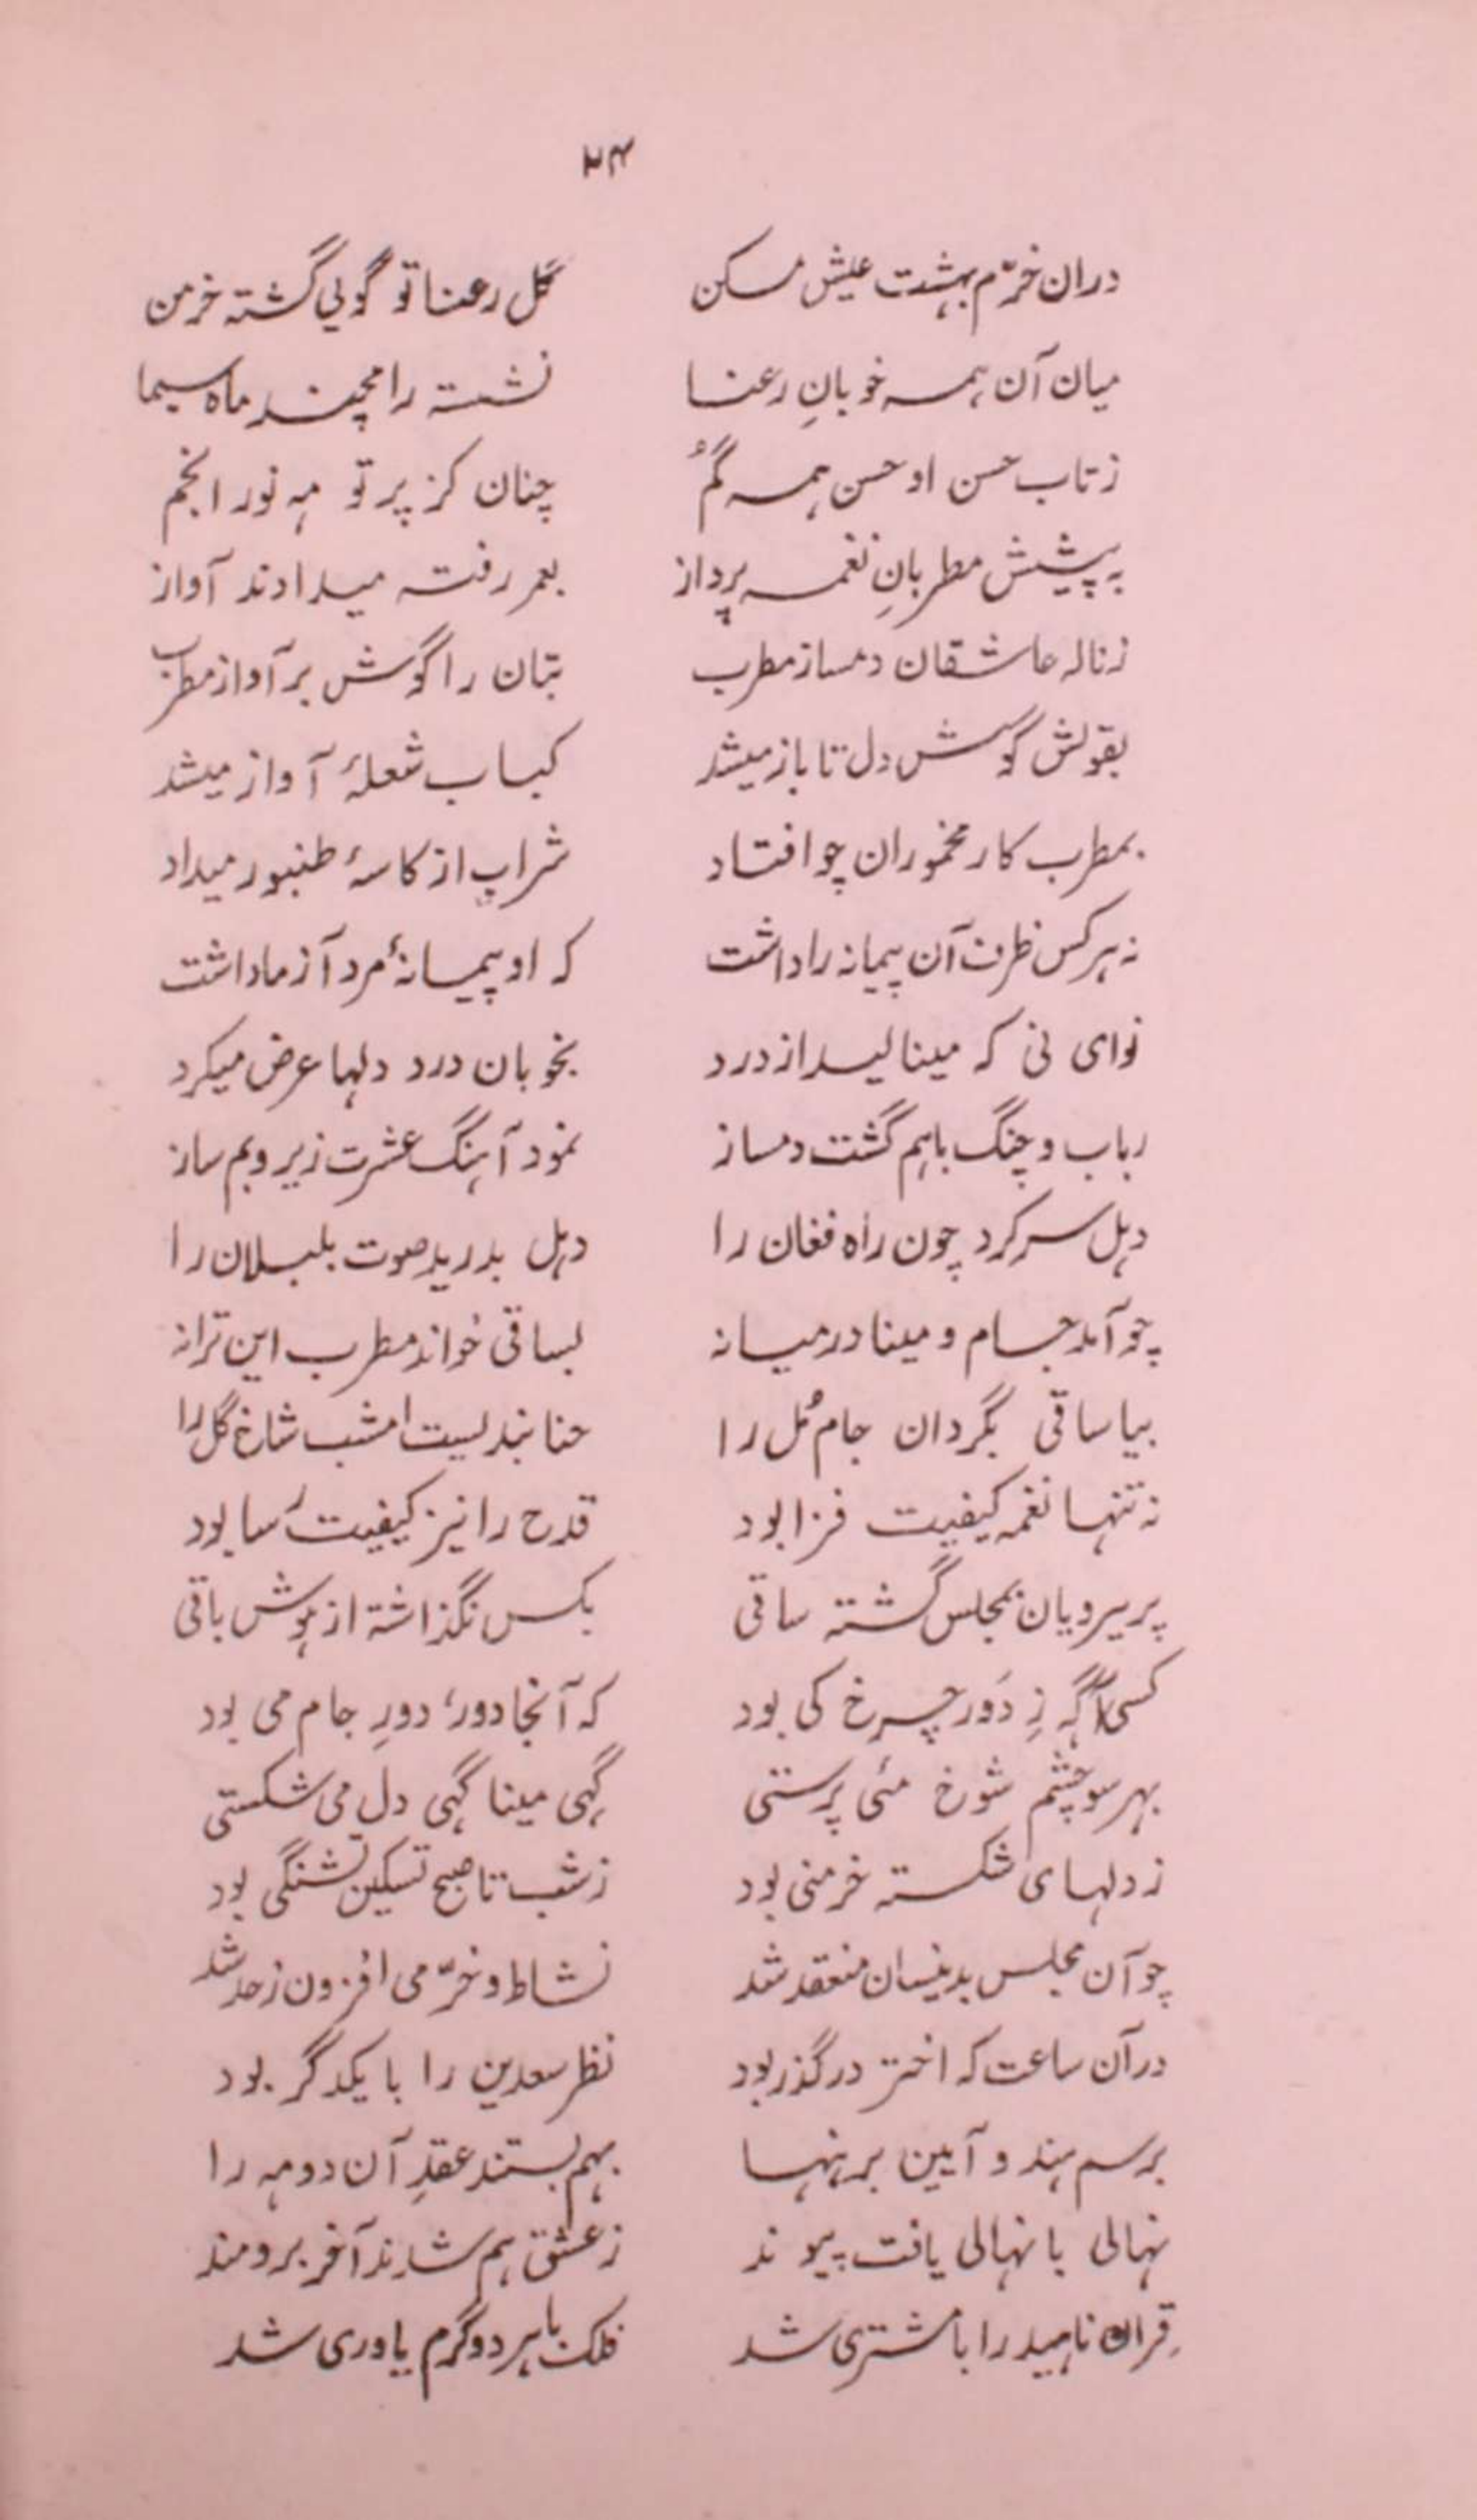 ۲۴
دران خرّم بهشت عیش مسکن گل رعنا تو گویی گشته خرمن
میان آن همه خوبانِ رعنا نشسته رامچند ماه سیما
ز تاب حسن او حسن همه گُم چنان کز پرتو مه نور انجم
به پیشش مطربانِ نغمه پرداز بعمر رفته میدادند آواز
ز ناله عاشقان دمساز مطرب بتان را گوش بر آواز مطرب
بقولش گوش دل تا باز میشد کباب شعلهٔ آواز میشد
بمطرب کار مخموران چو افتاد شراب از کاسهٔ طنبور میداد
نه هر کس ظرف آن پیمانه را داشت که او پیمانهٔ مرد آزما داشت
نوای نی که مینالید از درد بخوبان درد دلها عرض میکرد
رباب و چنگ باهم گشت دمساز نمود آهنگ عشرت زیر و بم ساز
دهل سر کرد چون راه فغان را دهل بدرید صوت بلبلان را
چو آمد جام و مینا درمیانه بساقی خواند مطرب این ترانه
بیا ساقی بگردان جام مُل را حنا بندیست امشب شاخ گل را
نه تنها نغمه کیفیت فزا بود قدح را نیز کیفیت رسا بود
پریرویان بمجلس گشته ساقی بکس نگذاشته از هوش باقی
کسی آگه زِ دَور چرخ کی بود که آنجا دور، دورِ جام می بود
بهر سو چشم شوخ مئی پرستی گهی مینا گهی دل می شکستی
ز دلهای شکسته خرمنی بود ز شب تا صبح تسکین تشنگی بود
چو آن مجلس بدینسان منعقد شد نشاط و خرّمی افزون ز حد شد
در آن ساعت که اختر در گذر بود نظر سعدین را با یکدگر بود
برسم هند و آیین برهنها بهم بستند عقدِ آن دو مه را
نهالی با نهالی یافت پیوند ز عشق هم شدند آخر برومند
قران ناهید را با مشتری شد فلک با هر دو گرم یاوری شد